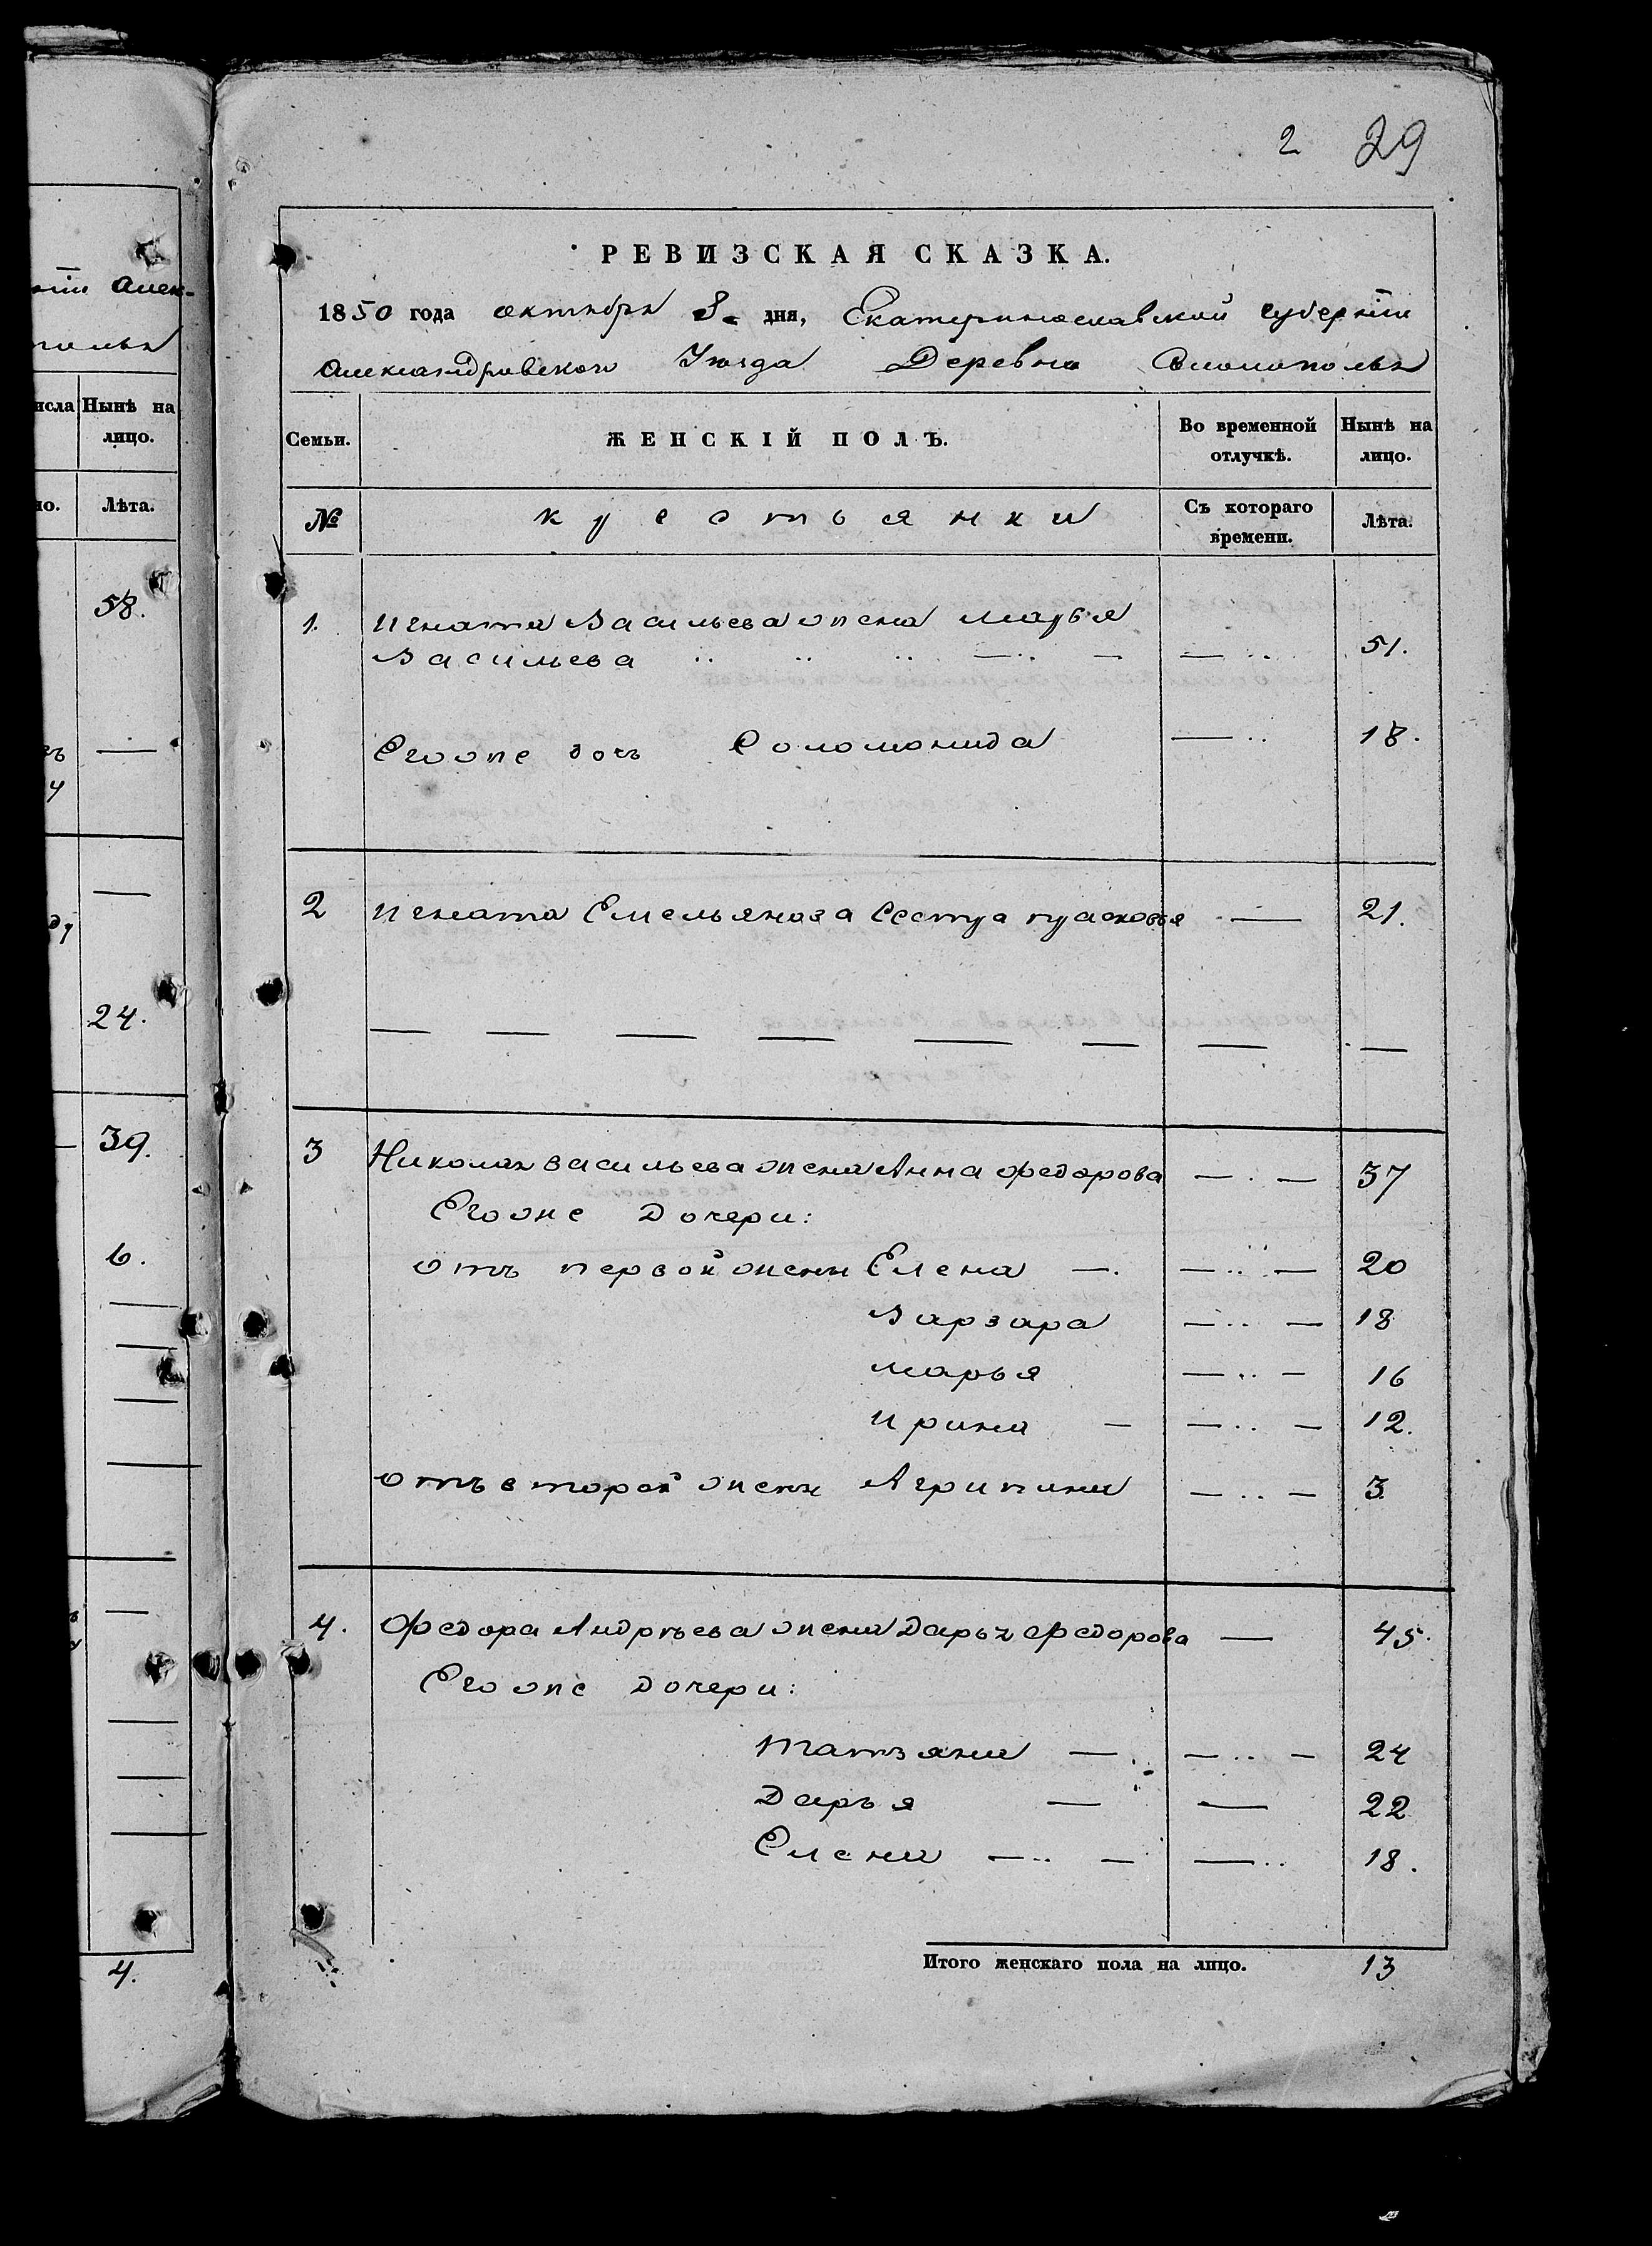 2 29
РЕВИЗСКАЯ СКАЗКА.
1850 года октября 8. дня, Екатеринославской губернiи
Александровского Уѣзда Деревня
Семьи. ЖЕНСКIЙ ПОЛЪ. Во временной отлучкѣ. Нынѣ на лицо.
№ крестьянки Съ котораго времени. Лѣта.
1. Игната Васильева жена Марья
Васильева 51.
Его же дочь Соломонида 18.
2 Игната Емельянова Сестра прасковья — 21.
3 Николая васильева жена Анна Федорова — 37
Его же Дочери:
отъ первой жены Елена — 20
Варвара — 18
марья — 16
ирина — 12.
отъ второй жены Агрипина — 3.
4. Федора Андрѣева жена Дарья Федорова — 45.
Его же дочери:
Татьяна — 24
Дарья — 22
Елена — 18.
Итого женскаго пола на лицо. 13
Алек-
исла Нынѣ на
лицо.
но. Лѣта.
58.
24.
39.
6.
4.